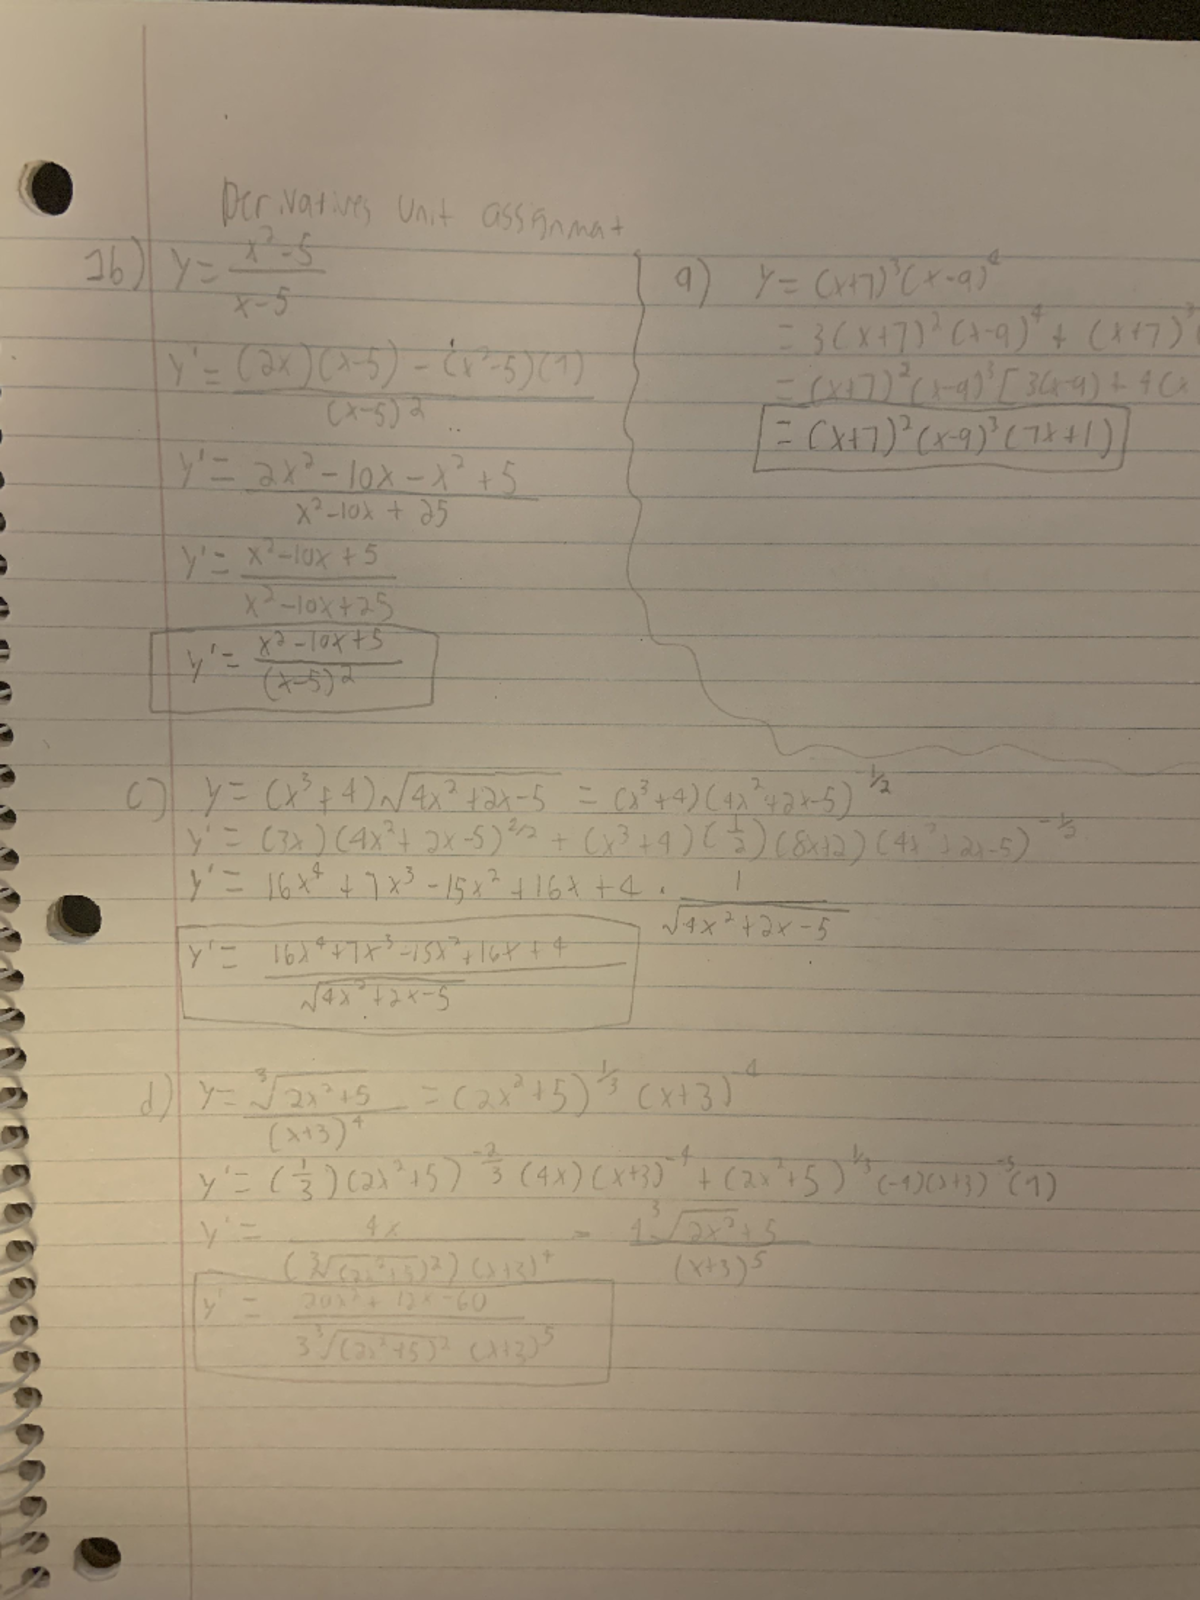 Derivatives Unit assignmat
1b) y = (x² - 5)/(x - 5)
y' = ((2x)(x-5) - (x²-5)(1))/((x-5)²)
y' = (2x² - 10x - x² + 5)/(x² - 10x + 25)
y' = (x² - 10x + 5)/(x² - 10x + 25)
y' = (x² - 10x + 5)/((x-5)²)
a) y = (x+7)³(x-9)⁴
= 3(x+7)²(x-9)⁴ + (x+7)³(
= (x+7)²(x-9)³[3(x-9) + 4(x
= (x+7)²(x-9)³(7x+1)
c) y = (x³+4)√(4x²+2x-5) = (x³+4)(4x²+2x-5)^(-1/2)
y' = (3x)(4x²+2x-5)^(2/2) + (x³+4)(1/2)(8x+2)(4x²+2x-5)^(-1/2)
y' = 16x⁴ + 7x³ - 15x² + 16x + 4 · 1/√(4x²+2x-5)
y' = (16x⁴+7x³-15x²+16x+4)/√(4x²+2x-5)
d) y = ∛(2x²+5)/(x+3)⁴ = (2x²+5)^(1/3) (x+3)^(-4)
y' = (1/3)(2x²+5)^(-2/3) (4x)(x+3)^(-4) + (2x²+5)^(1/3) (-4)(x+3)^(-5)(1)
y' = 4x/((∛(2x²+5)²)(x+3)⁴) - 4∛(2x²+5)/(x+3)⁵
y' = (20x² + 12x - 60)/(3∛(2x²+5)² (x+3)⁵)